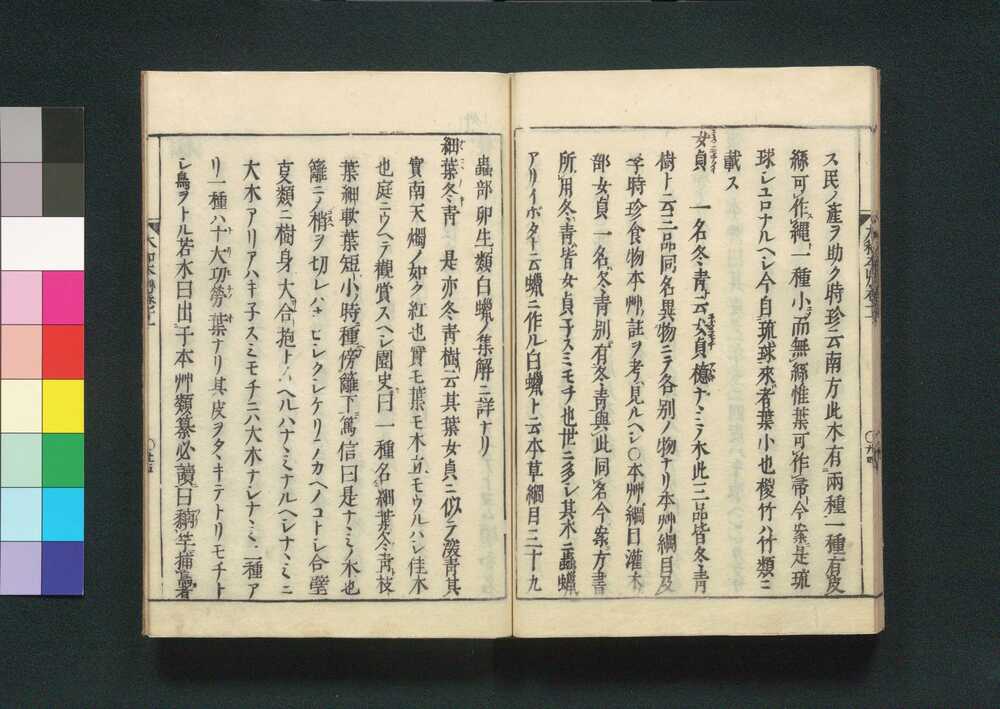 ス民ノ產ヲ助ク時珍云南方此木有兩種一種有皮
絲可作繩一種小而無絲惟葉可作帚今案是琉
球シユロナルヘシ今自琉球來者葉小也椶竹ハ竹類ニ
載ス
女貞 一名冬青云女貞 ナミノ木此三品皆冬青
樹ト云三品同名異物ニテ各別ノ物ナリ本艸綱目及
時珍食物本艸註ヲ考見ルヘシ○本艸綱目灌木
部女貞一名冬青別有冬青與此同名今案方書
所用冬青皆女貞子スミモチ也世ニ多シ其木ニ蟲蠟
アリイボタト云蠟ニ作ル白蠟ト云本草綱目三十九
蟲部卵生類白蠟ノ集解ニ詳ナリ
細葉冬青 是亦冬青樹云其葉女貞ニ似テ淩青其
實南天燭ノ如ク紅也實モ葉モ木立モウルハシ佳木
也庭ニウヘテ觀賞スヘシ園史曰一種名細葉冬青枝
葉細軟葉短小ノ時種傍籬下篤信曰是ナミノ木也
籬ニシ梢ヲ切レハ ヒシクシケリノカヘノコトシ合璧
夏類ニ樹身大合抱ト ヘルハナミナルヘシナミニ
大木アリアハキ子スミモチニハ大木ナシナミニ二種ア
リ一種ハ十大功勞葉ナリ其皮ヲタヽキテトリモチト
シ鳥ヲトル若水曰出于本艸類纂必讀曰 竿捕鳥者
大和本草卷十一